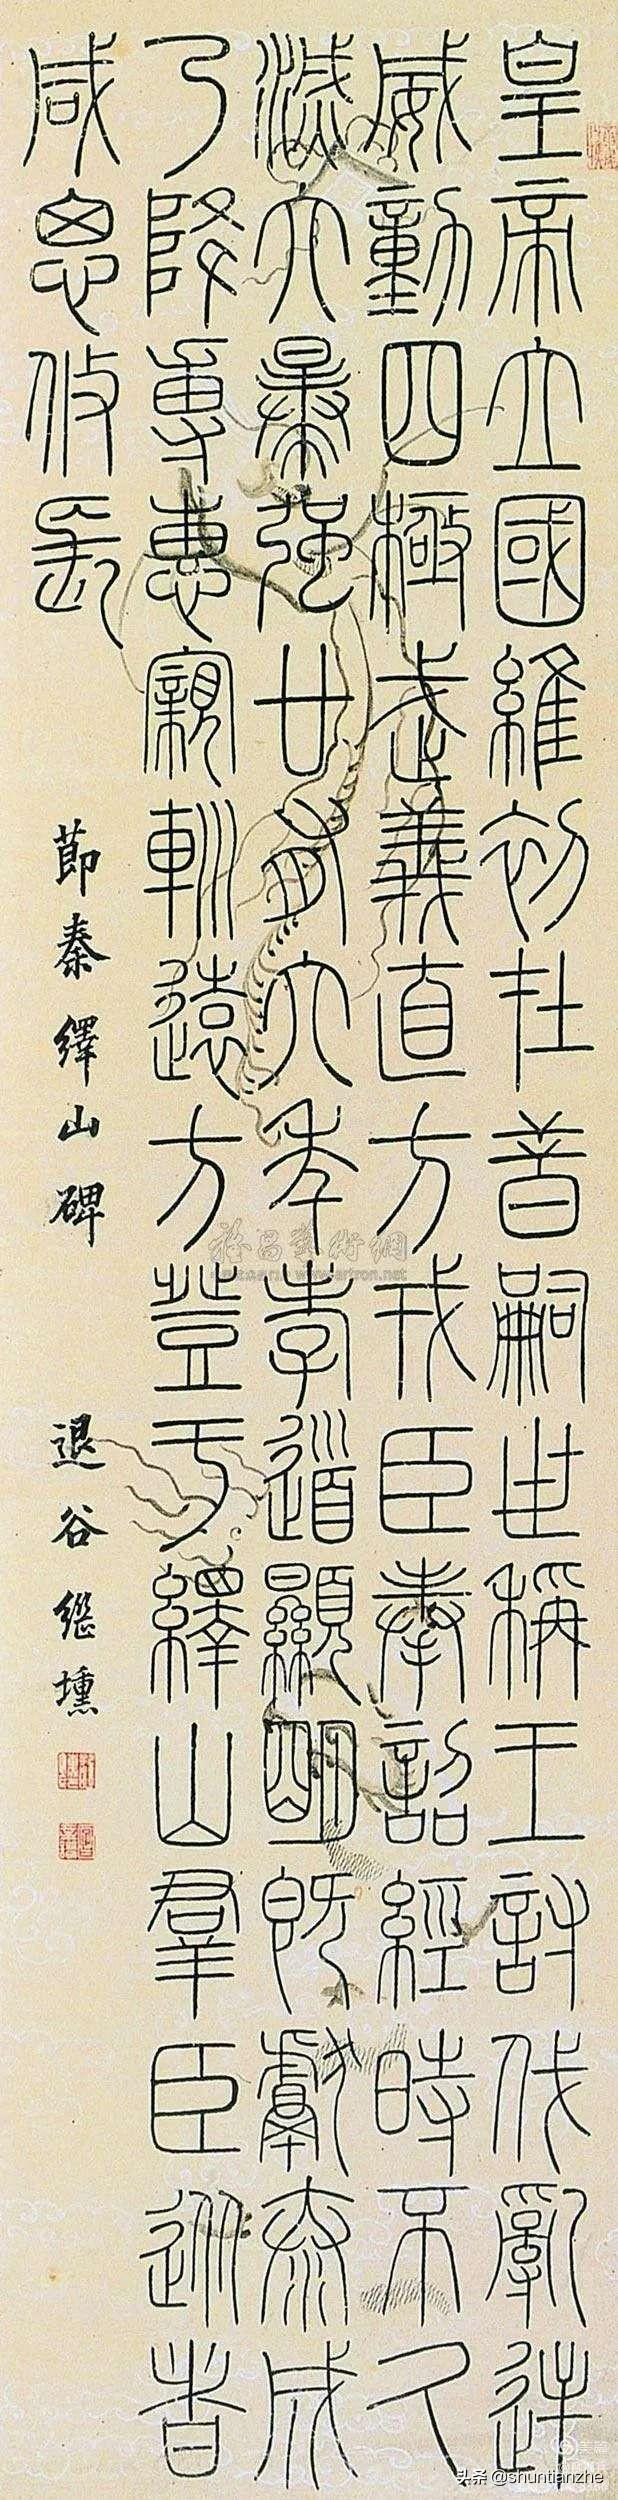 皇帝立國維初在昔嗣世稱王討伐亂逆
威動四極武義直方戎臣奉詔經時不久
滅六暴强廿有六年孝道顯明既獻泰成
乃降專惠寴巡遠方登于繹山羣臣從者
咸思攸長
節秦繹山碑
退谷繼壎
雅昌藝術網
www.artron.net
头条 @shuntianzhe